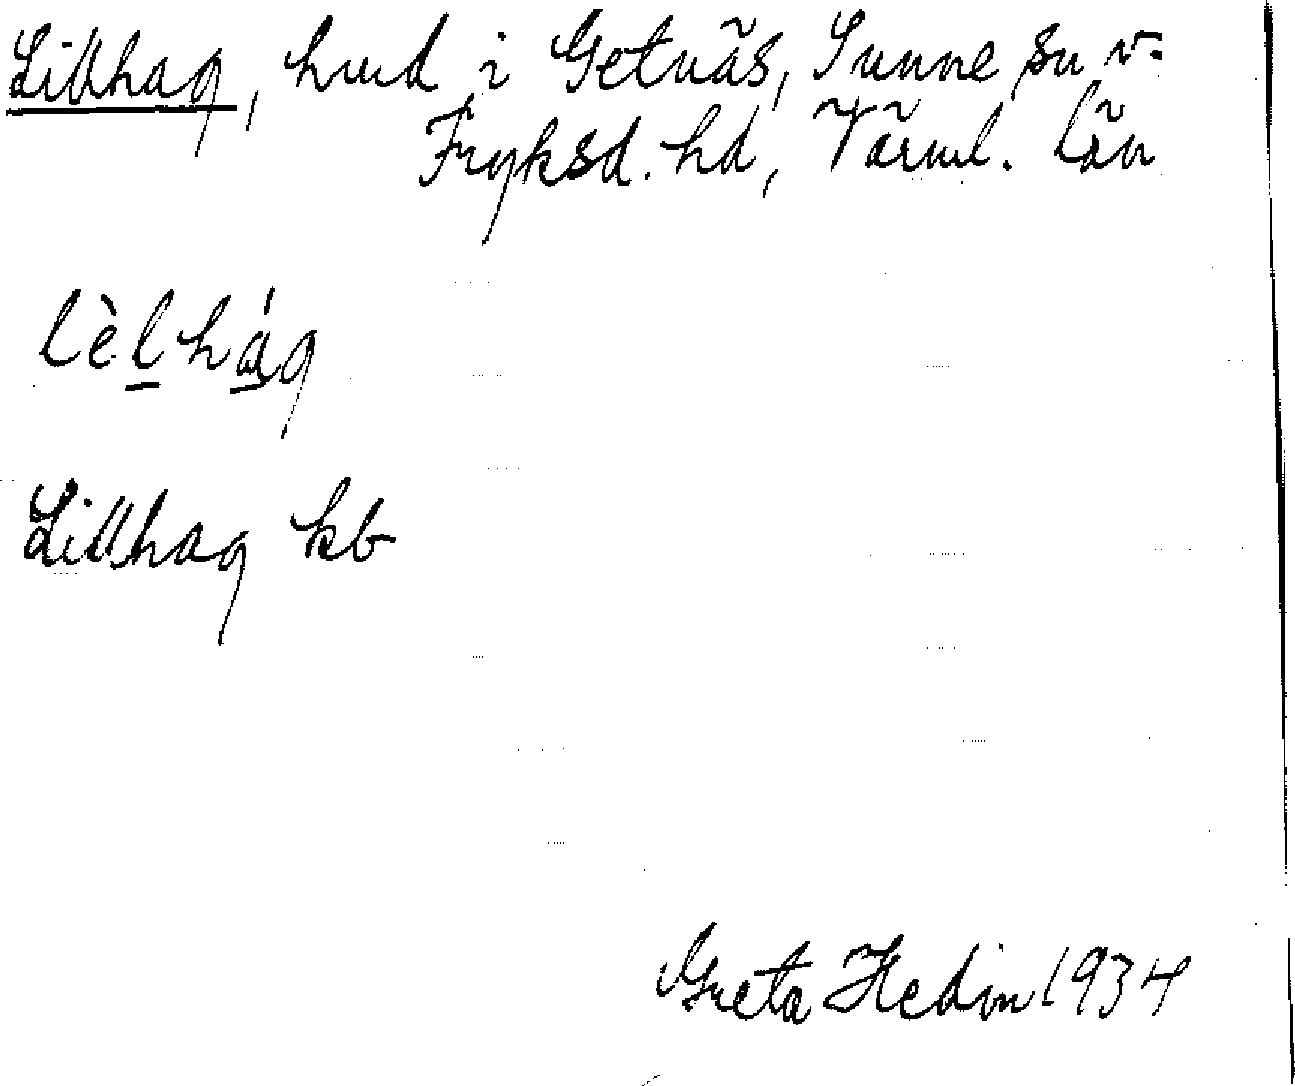 Lillhag, hmd i Getnäs, Sunne sn v.
Fryksd. hd, Värml. län
lèlhág
Lillhag kb
Greta Hedin 1934